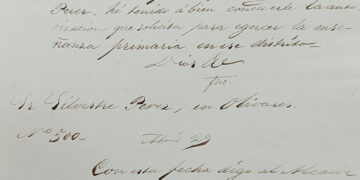 Perez, hé tenido á bien concederle la auto-
rizacion que solicita para egercer la ense-
ñanza primaria en ese distrito.
Dios &c
Sr Silvestre Perez, en Olivares.
Nº 500- Abril 29
Con esta fecha digo al Alcalde